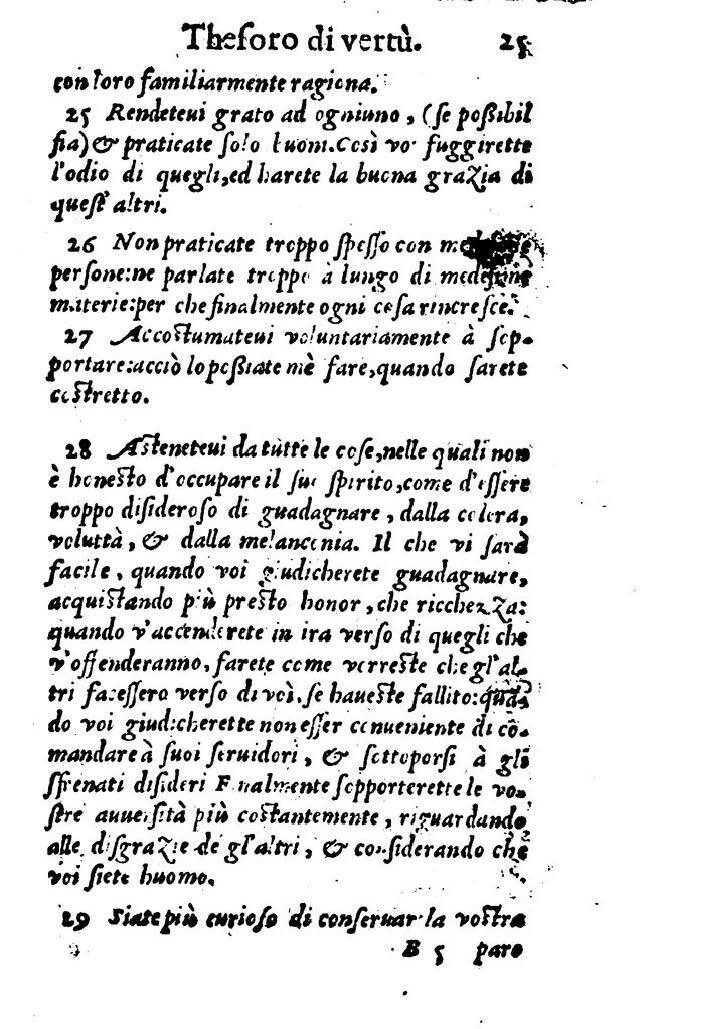 Theſoro di vertù. 25
con loro familiarmente ragiona.
25 Rendeteui grato ad ogniuno, (ſe poßibil
ſia) & praticate ſolo buoni. Così voi fuggirette
l'odio di quegli, ed harete la buona grazia di
queſt' altri.
26 Non praticate troppo ſpeſſo con
perſone: ne parlate troppo à lungo di medeſime
materie: per che finalmente ogni coſa rincreſce.
27 Accoſtumateui voluntariamente à ſop-
portare: acciò lo poßiate mè fare, quando ſarete
coſtretto.
28 Aſteneteui da tutte le coſe, nelle quali non
è honeſto d'occupare il ſuo ſpirito, come d'eſſere
troppo diſideroſo di guadagnare, dalla colera,
voluttà, & dalla melanconia. Il che vi ſarà
facile, quando voi giudicherete guadagnare,
acquiſtando più preſto honor, che ricchezza:
quando v'accenderete in ira verſo di quegli che
v'offenderanno, farete come vorreſte che gl'al-
tri faceſſero verſo di voi, ſe haueſte fallito: quā-
do voi giudicherette non eſſer conueniente di cō-
mandare à ſuoi ſeruidori, & ſottoporſi à gli
sfrenati diſideri Finalmente ſopporterette le vo-
ſtre auuerſità più coſtantemente, riguardando
alle diſgrazie de gl'altri, & conſiderando che
voi ſiete huomo.
29 Siate più curioſo di conſeruar la voſtra
B 5 paro